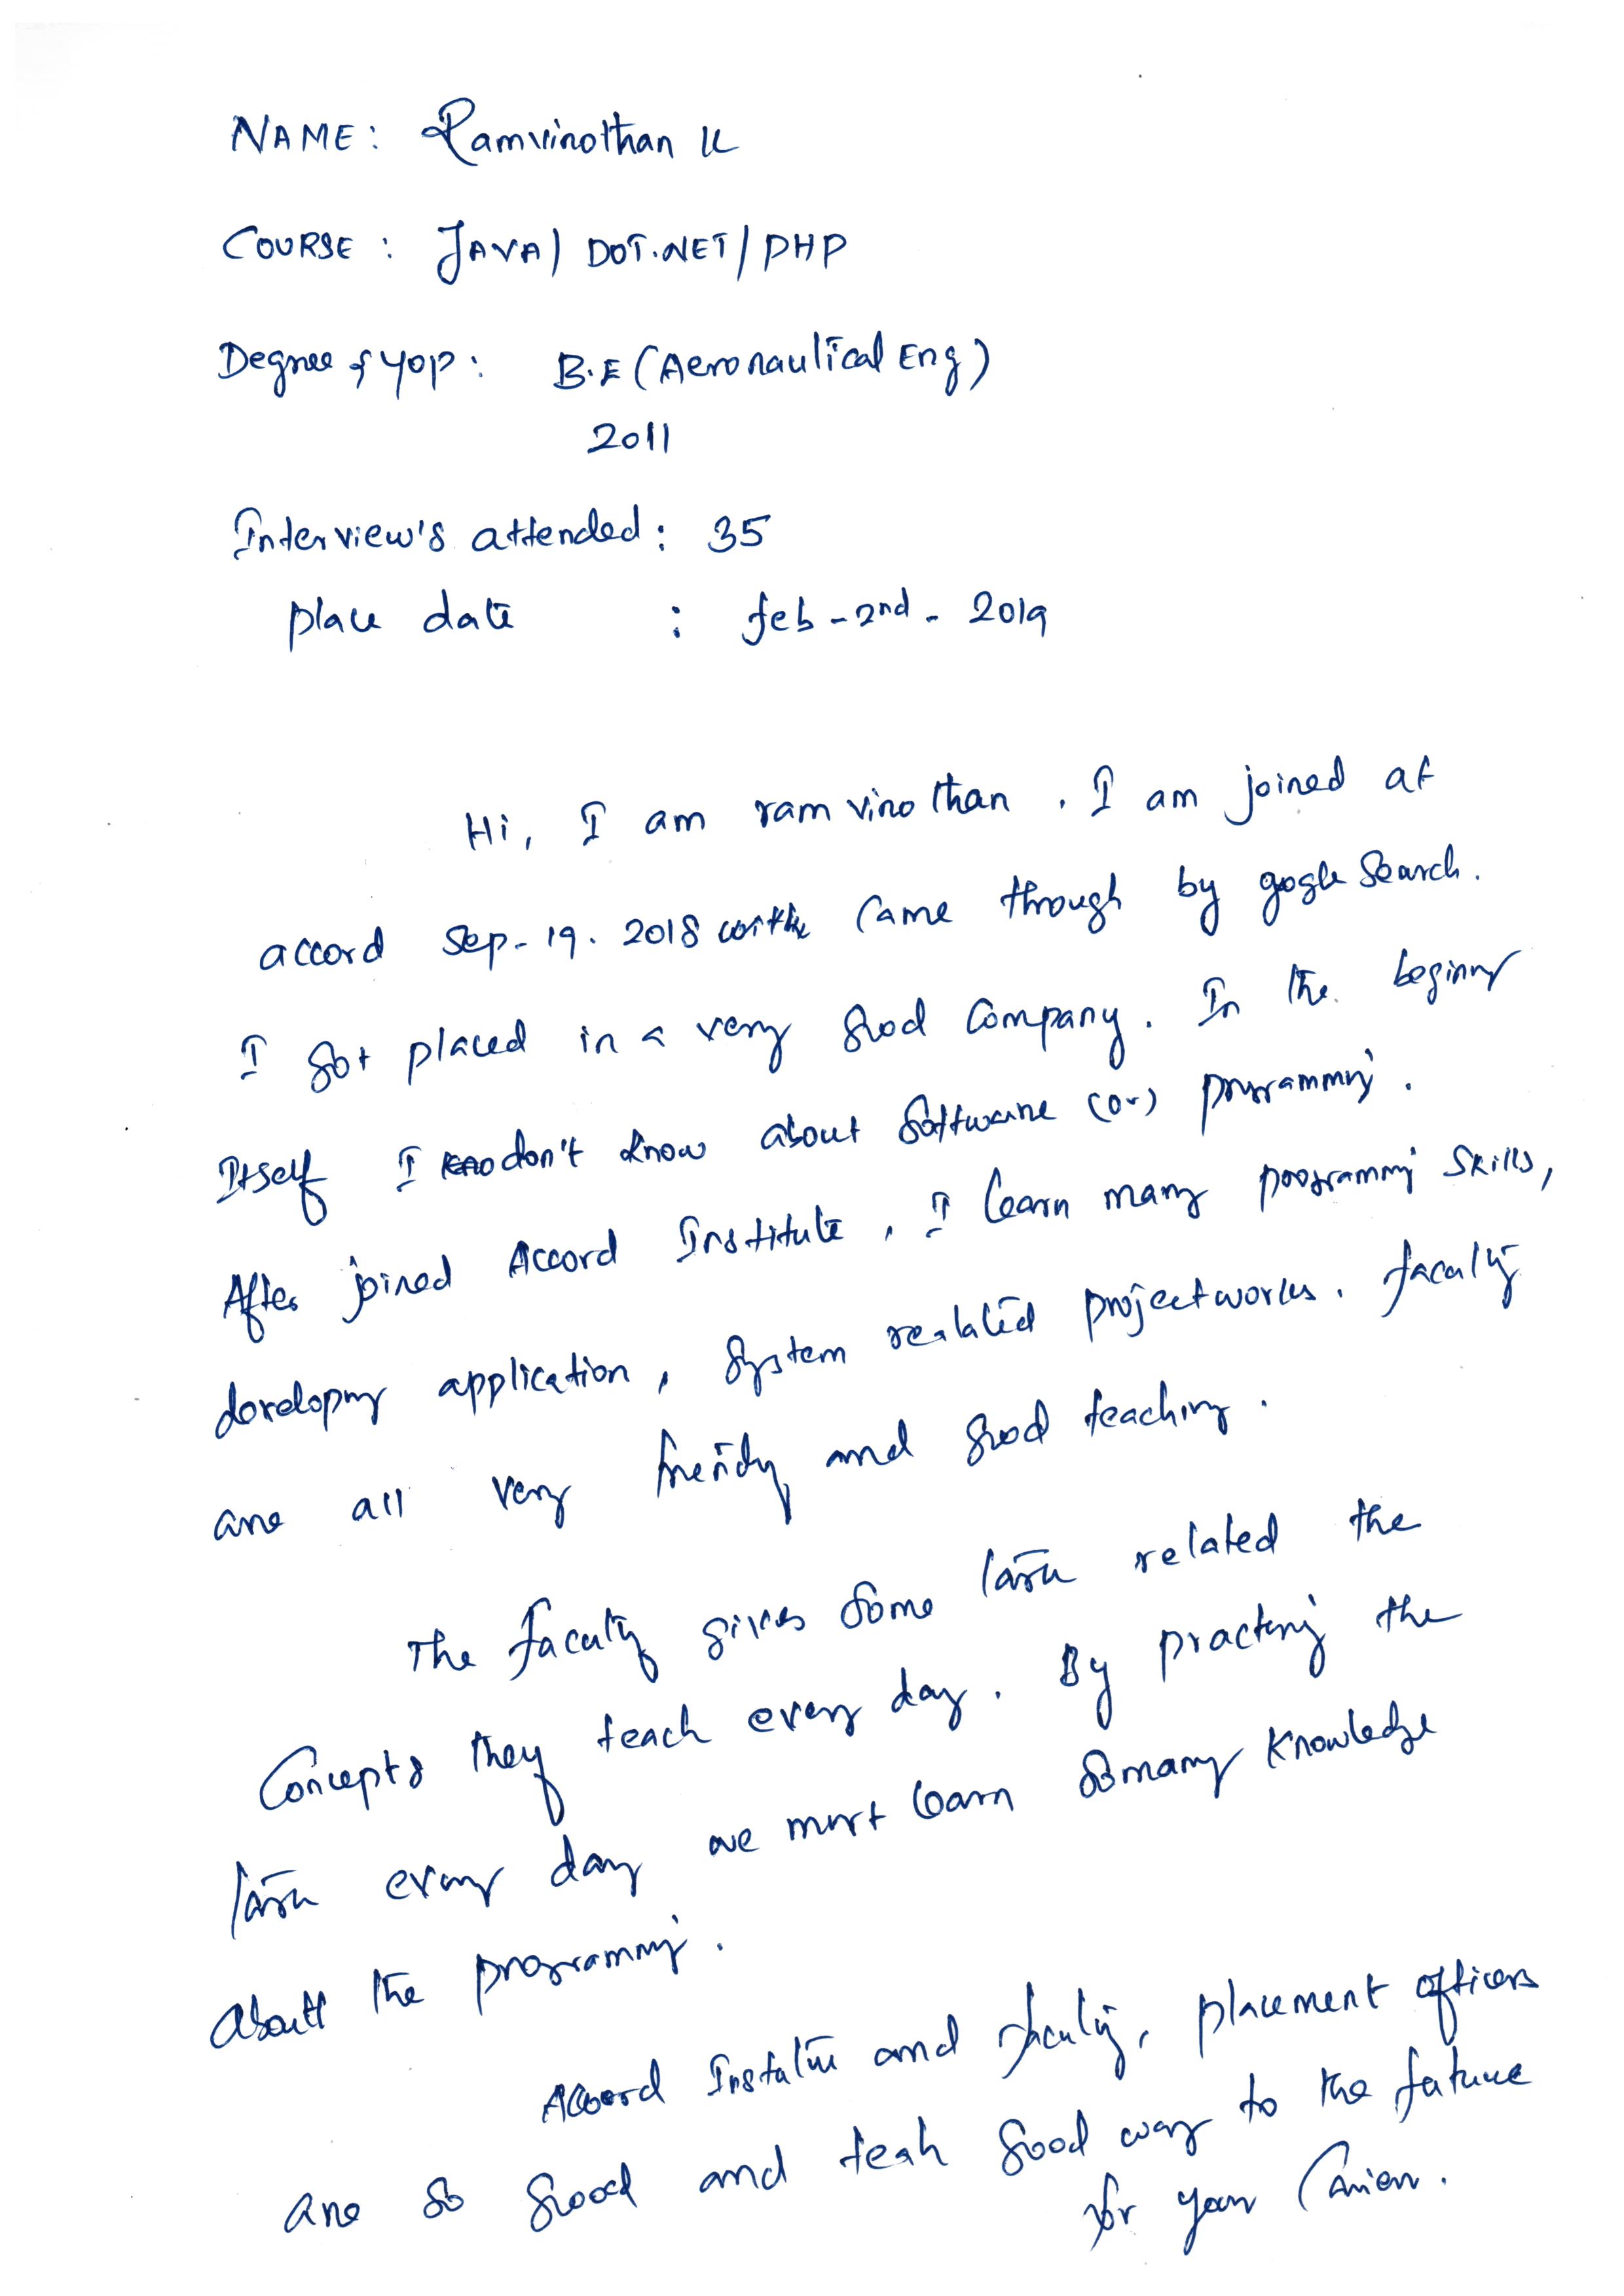 NAME: Ramvinothan K
COURSE : JAVA/ DOT.NET/PHP
Degree & YOP: B.E (Aeronautical Eng)
2011
Interview's attended: 35
place date : feb - 2nd - 2019
Hi, I am ram vinothan. I am joined at
accord Sep-19. 2018 Came through by gogle Search.
I got placed in a very good Company. In the
Itself I don't know about Software (or) programming.
After joined Accord Institute, I learn many programming Skills,
application, System realated projectworks. faculty
are all very and good teaching.
The faculty gives Some related the
Concepts they teach every day. By the
every day we must learn Somany Knowledge
about the programming.
Accord and faculty, placement officers
are so good and good way to the future
for your